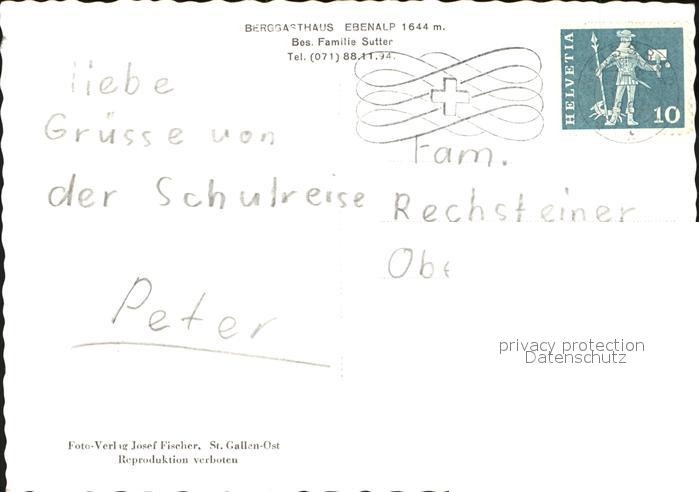 BERGGASTHAUS EBENALP 1644 m.
Bes. Familie Sutter
Tel. (071) 88.11.94.
HELVETIA
10
liebe
Grüsse von
der Schulreise
Peter
Fam.
Rechsteiner
Obe
privacy protection
Datenschutz
Foto-Verlag Josef Fischer, St. Gallen-Ost
Reproduktion verboten